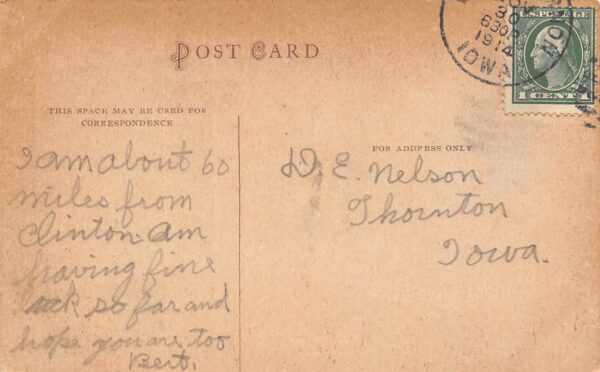 30
630P
1914
IOWA
U.S. POSTAGE
1 CENT 1
POST CARD
THIS SPACE MAY BE USED FOR
CORRESPONDENCE
FOR ADDRESS ONLY
I am about 60
miles from
Clinton. am
having fine
luck so far and
hope you are too
Bert.
D. E. Nelson
Thornton
Iowa.